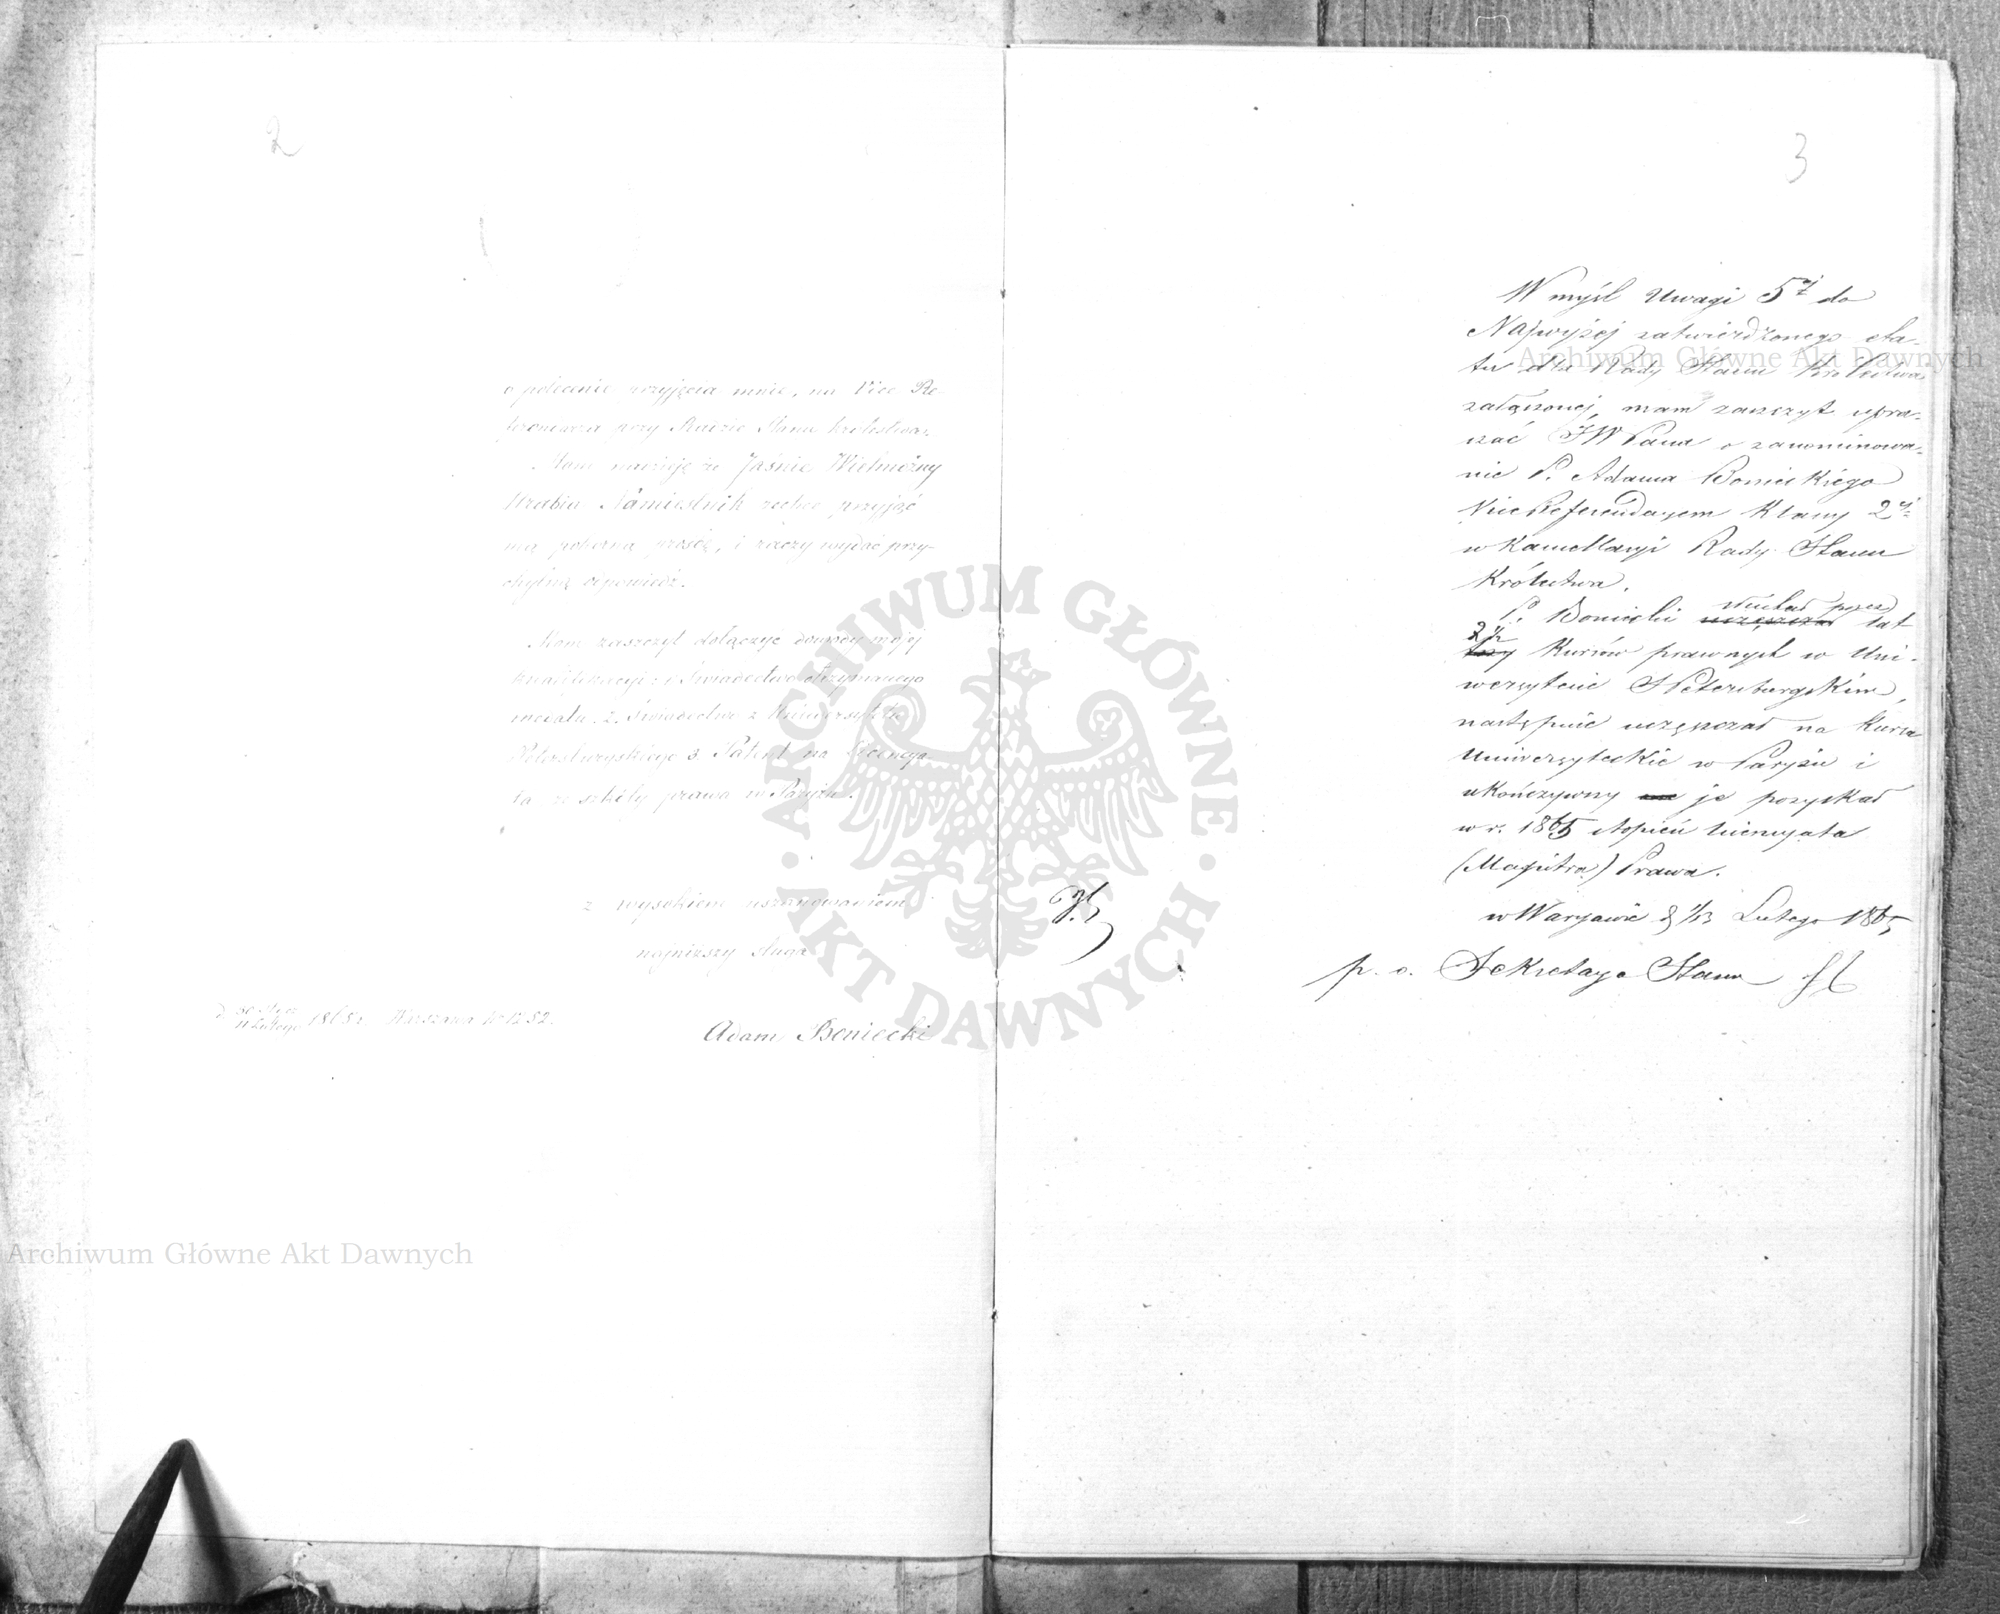 2
o polecenie przyjęcia mnie, na Vice Re-
ferendarza przy Radzie Stanu Królestwa.
Mam nadzieję że Jaśnie Wielmożny
Hrabia Namiestnik zechce przyjąć
mą pokorną prośbę, i raczy wydać przy-
chylną odpowiedź.
Mam zaszczyt dołączyć dowody mojej
kwalifikacyi: 1. Świadectwo otrzymanego
medalu. 2. Świadectwo z Uniwersytetu
Petersburgskiego 3. Patent na Licencya-
ta ze szkoły prawa w Paryżu.
z wysokiem uszanowaniem
najniższy sługa
Adam Boniecki
d. 30 Stycz 11 Lutego 1865 r. Warszawa Nr 1252.
3
W myśl Uwagi 5ej do
Najwyżej zatwierdzonego eta-
tu dla Rady Stanu Królestwa
załączonej, mam zaszczyt upra-
szać JW Pana o zanominowa-
nie P. Adama Bonieckiego
Vice Referendarzem Klassy 2ej
w Kancellaryi Rady Stanu
Królestwa.
P. Boniecki uczęszczał słuchał przez lat
trzy 2 1/2 Kursów prawnych w Uni-
wersytecie SPetersburgskim,
następnie uczęszczał na Kursa
Uniwersyteckie w Paryżu i
ukończywszy je pozyskał
w r. 1865 stopień licencyata
(Magistra) Prawa.
w Warszawie d 1/13 Lutego 1865
p. o. Sekretarza Stanu
Archiwum Główne Akt Dawnych
Archiwum Główne Akt Dawnych
ARCHIWUM GŁÓWNE · AKT DAWNYCH ·